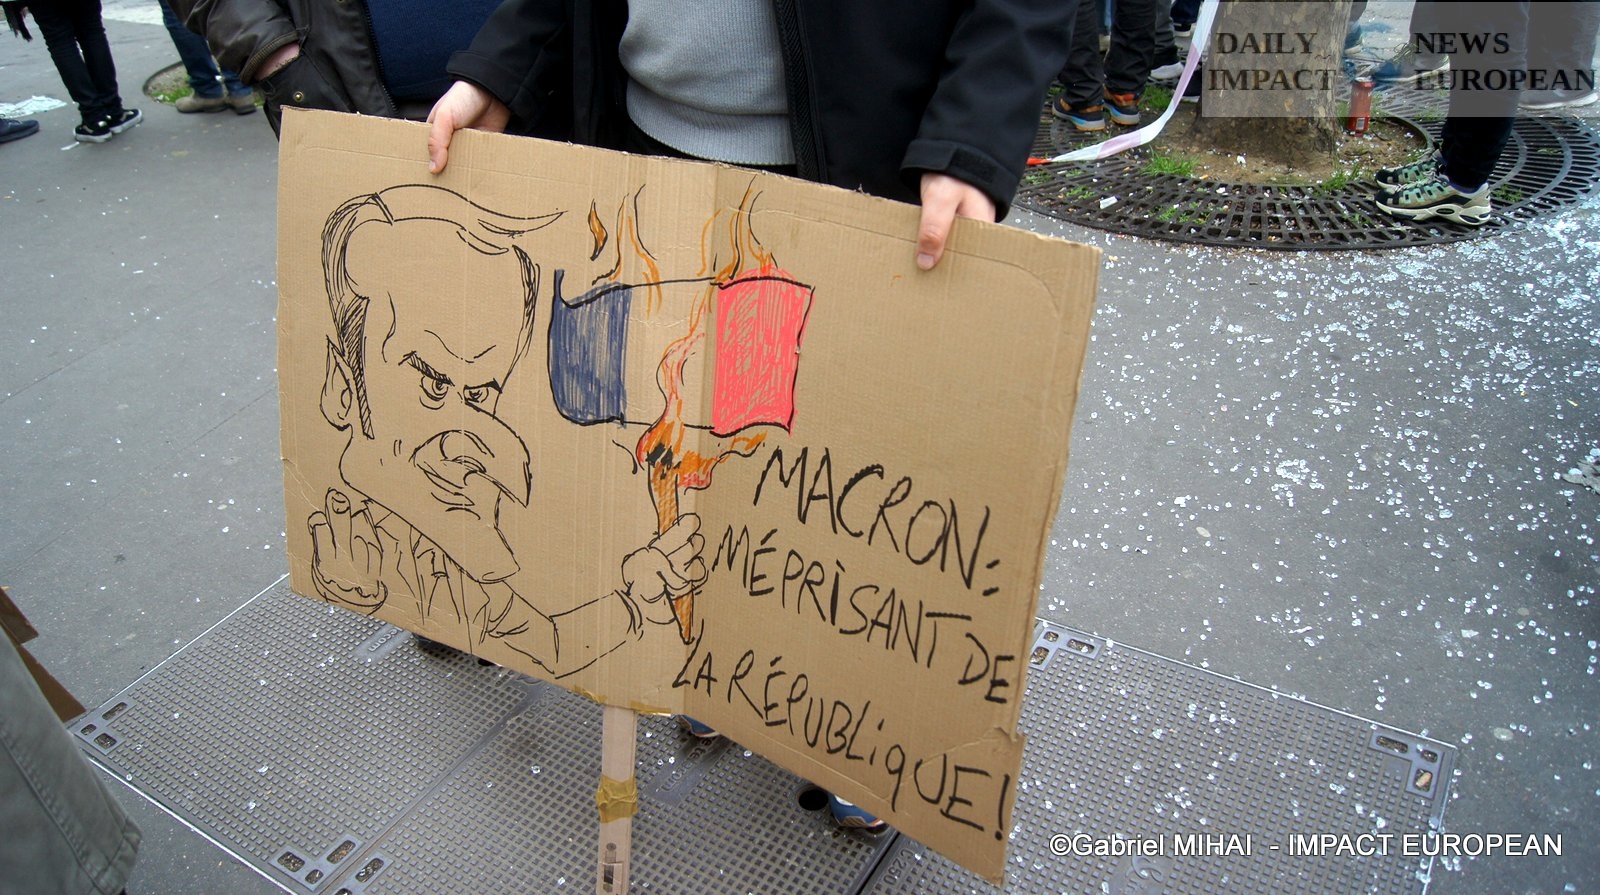 DAILY NEWS
IMPACT EUROPEAN
MACRON:
MÉPRISANT DE
LA RÉPUBLiqUE!
©Gabriel MIHAI - IMPACT EUROPEAN